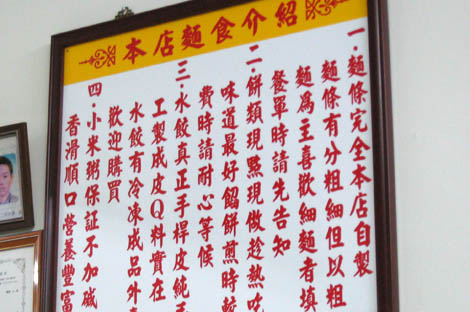 本店麵食介紹
一．麵條完全本店自製
麵條有分粗細但以粗
麵為主喜歡細麵者填
餐單時請先告知
二．餅類現點現做趁熱吃
味道最好餡餅煎時較
費時請耐心等候
三．水餃真正手桿皮純手
工製成皮Q料實在
水餃有冷凍成品外
歡迎購買
四．小米粥保証不加碱
香滑順口營養豐富